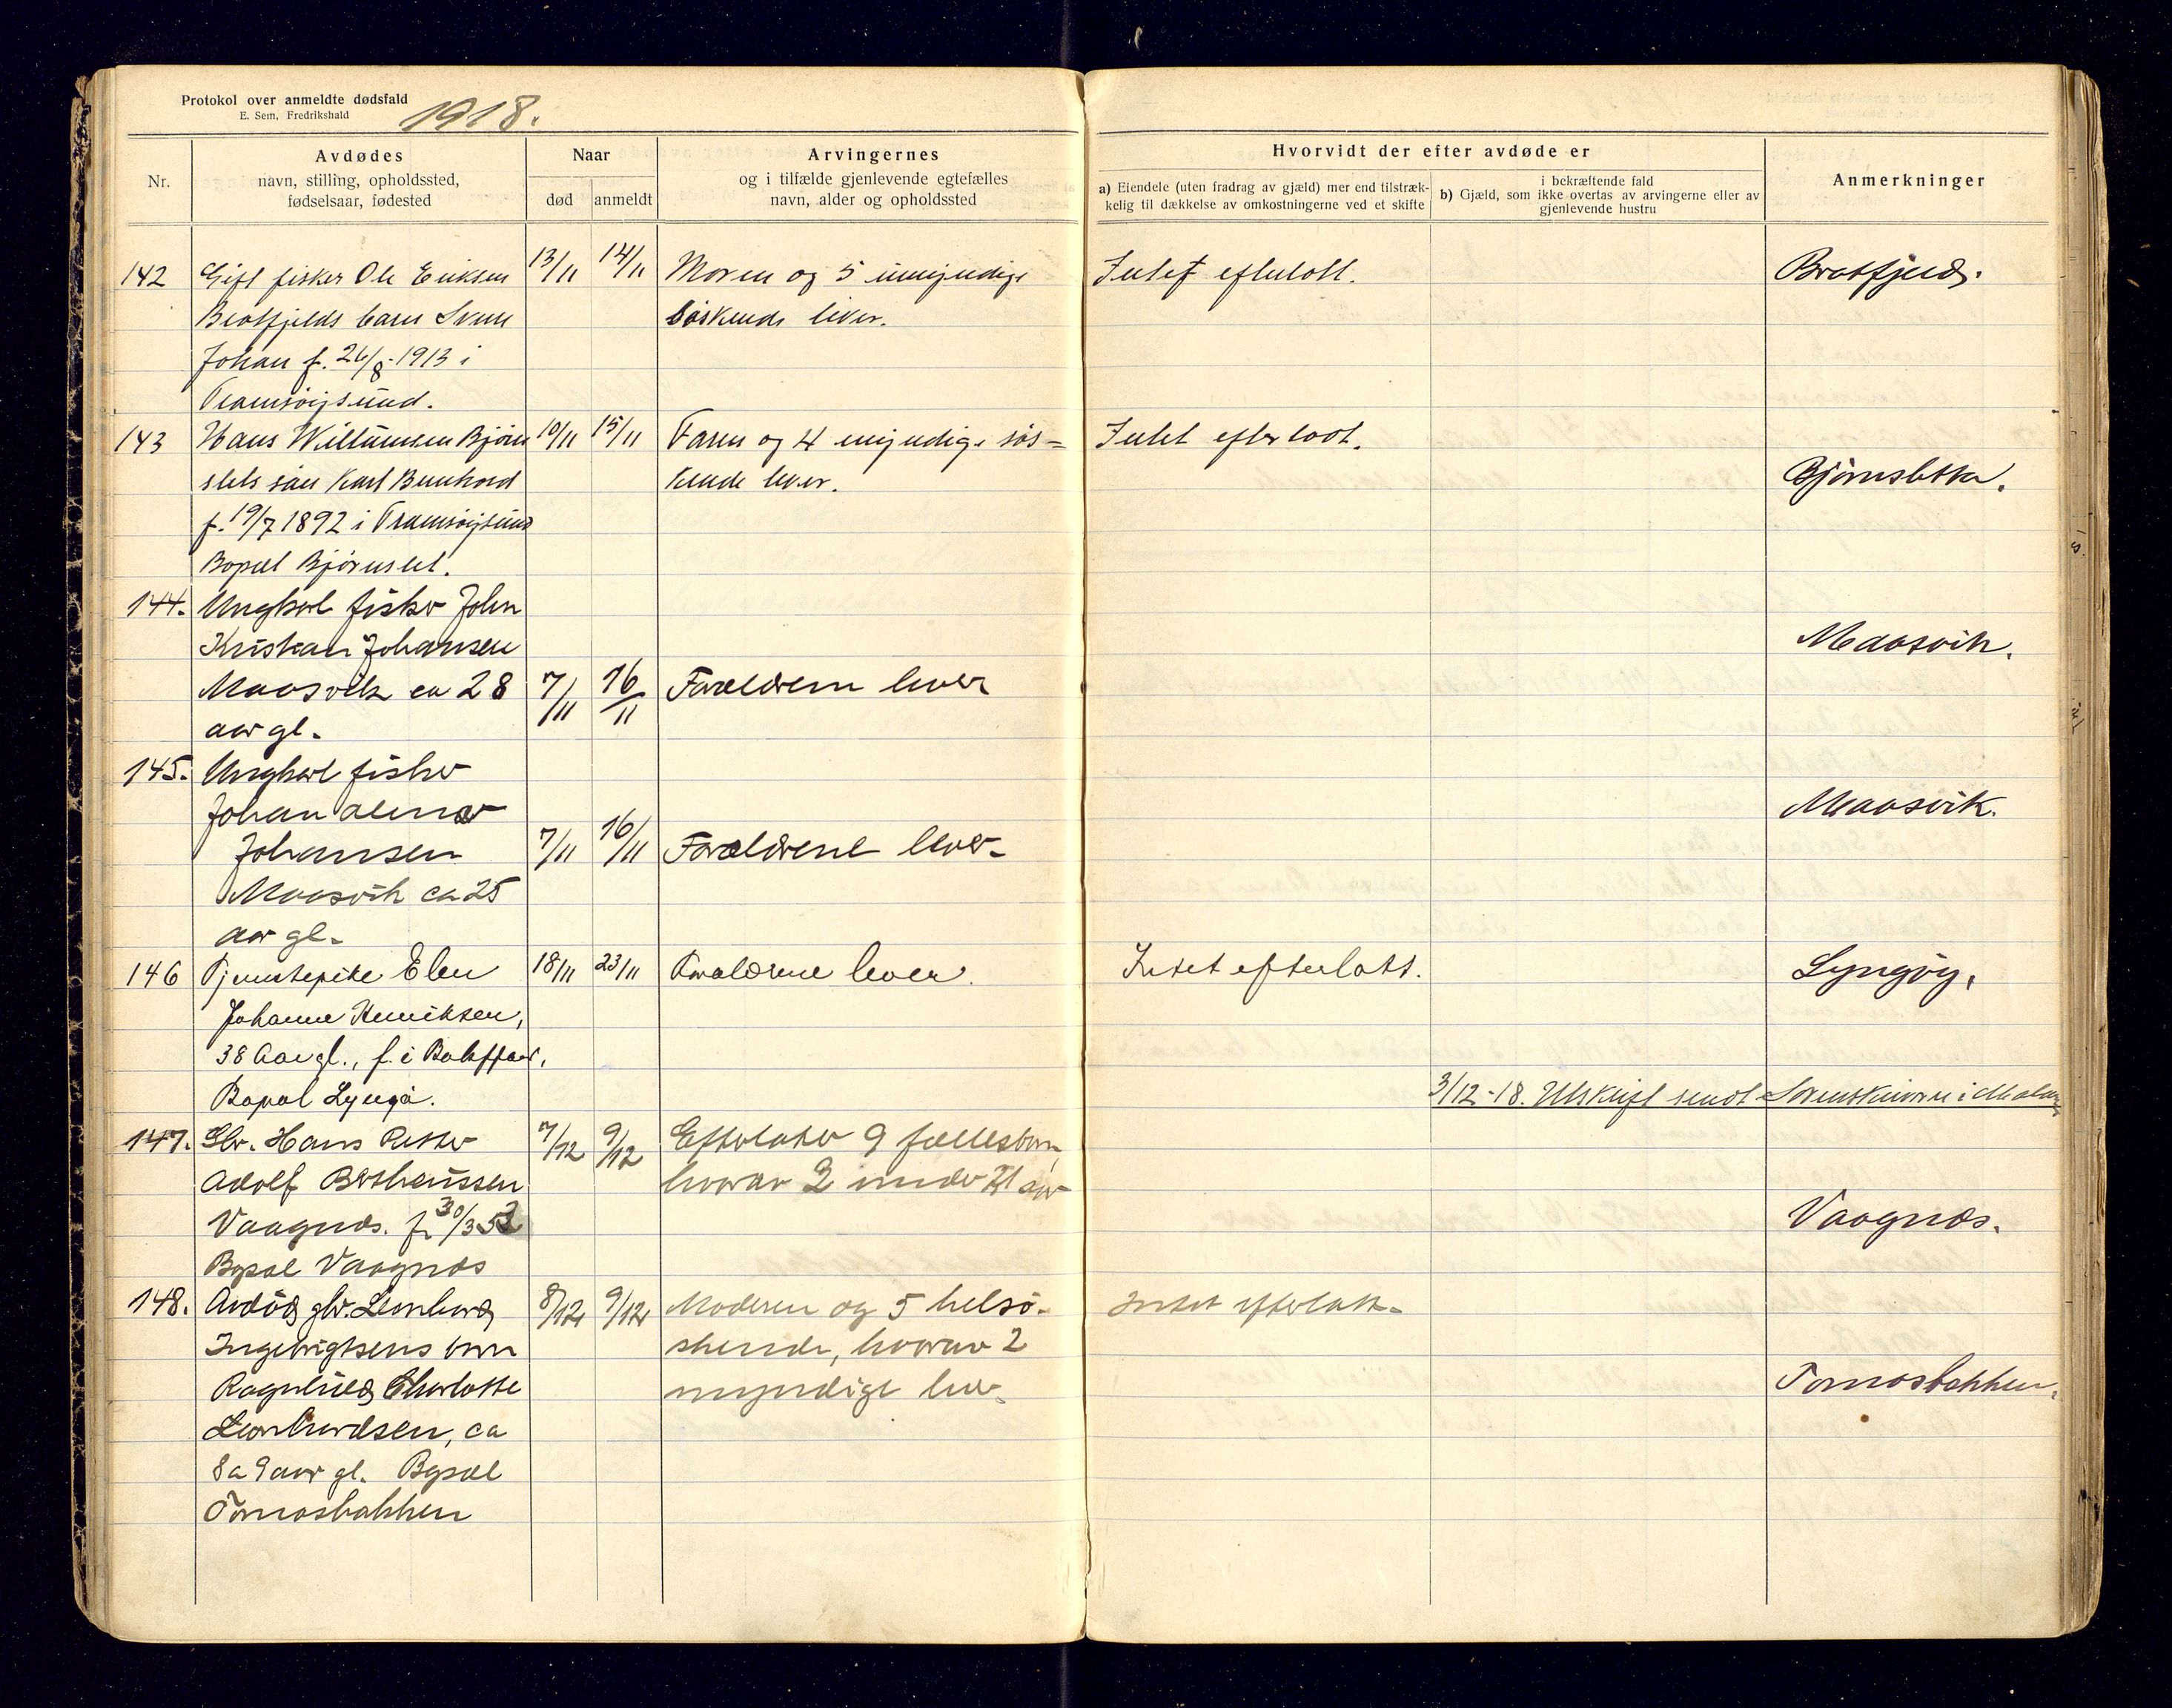 Protokol over anmeldte dødsfald
E. Sem, Fredrikshald
1918.
Nr.
Avdødes
navn, stilling, opholdssted,
fødselsaar, fødested
Naar
død
anmeldt
Arvingernes
og i tilfælde gjenlevende egtefælles
navn, alder og opholdssted
Hvorvidt der efter avdøde er
a) Eiendele (uten fradrag av gjæld) mer end tilstræk-
kelig til dækkelse av omkostningerne ved et skifte
i bekræftende fald
b) Gjæld, som ikke overtas av arvingerne eller av
gjenlevende hustru
Anmerkninger
142 Gift fisker Ole Eriksen 13/11 14/11 Moren og 5 umyndige Intet efterlatt. Bratfjeld.
Bratfjelds barn
søskende lever.
Johan f. 26/8-1913 i
Tromsøysund.
143 Hans Willumsen Bjørn 10/11 15/11 Faren og 4 myndige søs= Intet efterladt.
slets søn Karl Bernhard kende lever. Bjørnsletta.
f. 19/7 1892 i Tromsøysund
Bopæl Bjørnslet.
144. Ungkarl fisker John
Kristian Johansen Maasvik.
Maasvik ca 28 7/11 16/11 Forældrene lever
aar gl.
145. Ungkarl fisker
Johan Maasvik.
Johansen 7/11 16/11 Forældrene lever.
Maasvik ca 25
aar gl.
146 Tjenestepike Elen 18/11 23/11 Forældrene lever. Intet efterlatt. Lyngøy.
Johanne Henriksen,
38 Aar gl., f. i Balsfjord,
Bopæl Lyngø.
3/12-18. Utskrift sendt Sorenskriveren i Malangen
147. Gbr. Hans Petter 7/12 9/12 Efterlater 9 fællesbarn,
Adolf Bertheussen hvorav 2 under 21 aar
Vaagnes. f. 30/3 52 Vaagnes.
Bopæl Vaagnes
148. Avdød gbr. Leonhard 8/12 9/12 Moderen og 5 helsø- Intet efterlatt.
Ingebrigtsens barn skende, hvorav 2
Ragnhild Charlotte myndige lever. Tomasbakken.
Leonhardsen, ca
8 a 9 aar gl. Bopæl
Tomasbakken